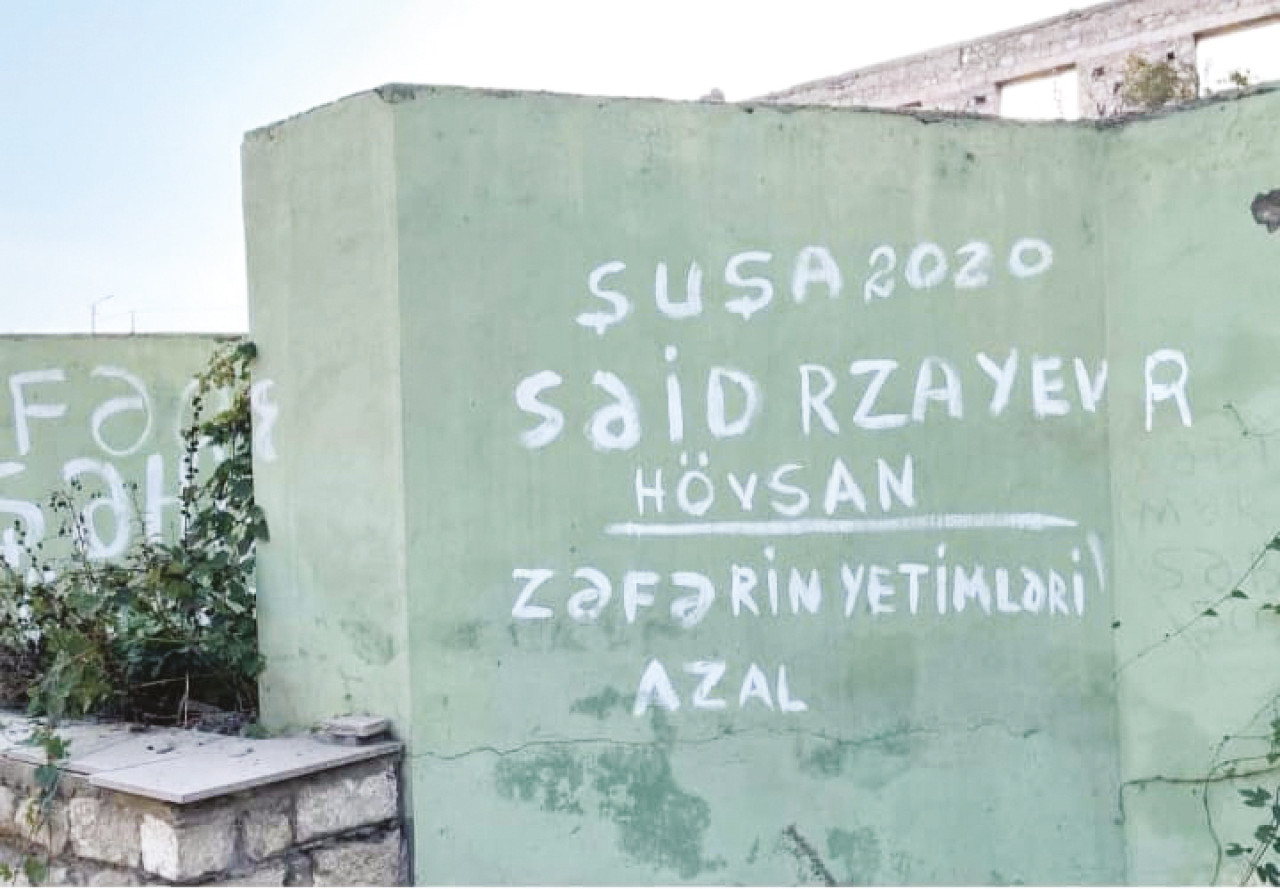 ŞUŞA 2020
SƏİD RZAYEV R
HÖVSAN
ZƏFƏRİN YETİMLƏRİ
AZAL